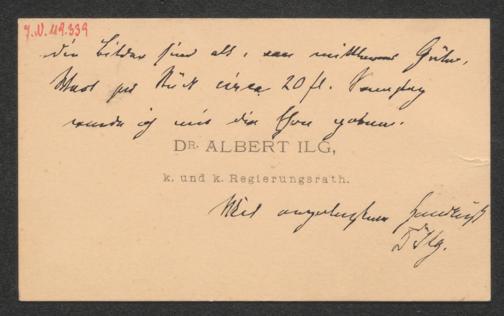 J.N. 119.339
die Bilder sind alt, von mittlerer Güte,
Wert per Stück circa 20 fl. Samstag
werde ich mir die Ehre geben.
DR. ALBERT ILG,
k. und k. Regierungsrath.
Mit
D Ilg.